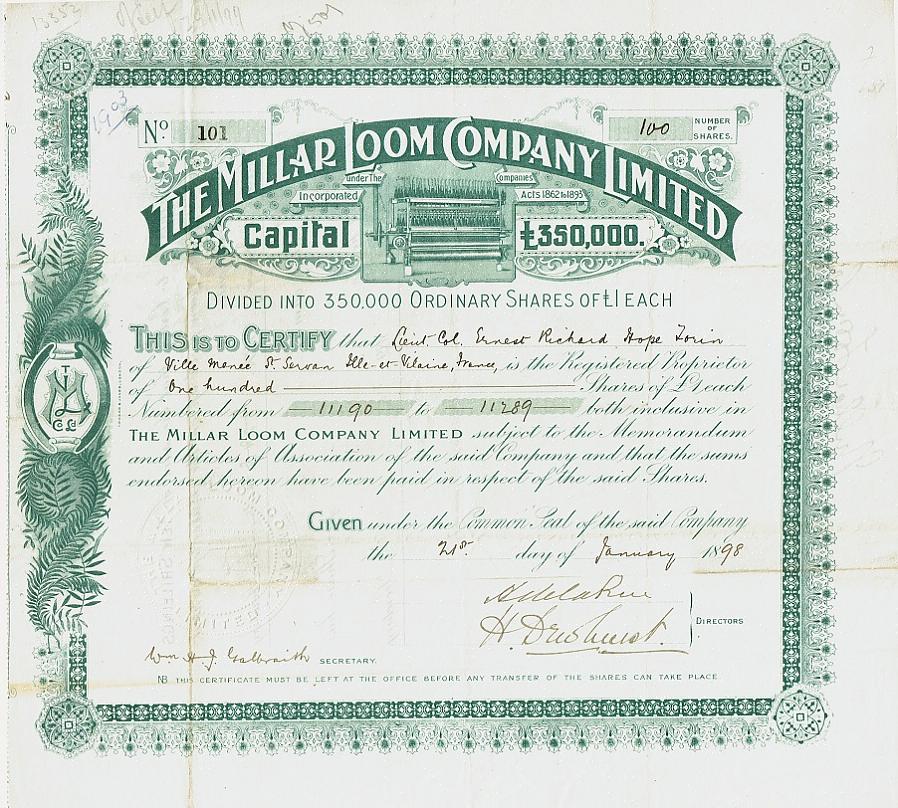 13352
1903
No. 101
100 NUMBER OF SHARES.
THE MILLAR LOOM COMPANY LIMITED
Incorporated under The Companies Acts 1862 to 1893
Capital £350,000.
DIVIDED INTO 350,000 ORDINARY SHARES OF £1 EACH
THIS IS TO CERTIFY that Lieut Col. Ernest Richard Hope Torin
of Ville Menée St. Servan Ille-et-Vilaine, France, is the Registered Proprietor
of One hundred Shares of £1 each
Numbered from 11190 to 11289 both inclusive in
THE MILLAR LOOM COMPANY LIMITED subject to the Memorandum
and Articles of Association of the said Company and that the sums
endorsed hereon have been paid in respect of the said Shares.
Given under the Common Seal of the said Company
the 21st day of January 1898
H. Dewhurst.
DIRECTORS
Wm H. J. Galbraith SECRETARY.
NB THIS CERTIFICATE MUST BE LEFT AT THE OFFICE BEFORE ANY TRANSFER OF THE SHARES CAN TAKE PLACE